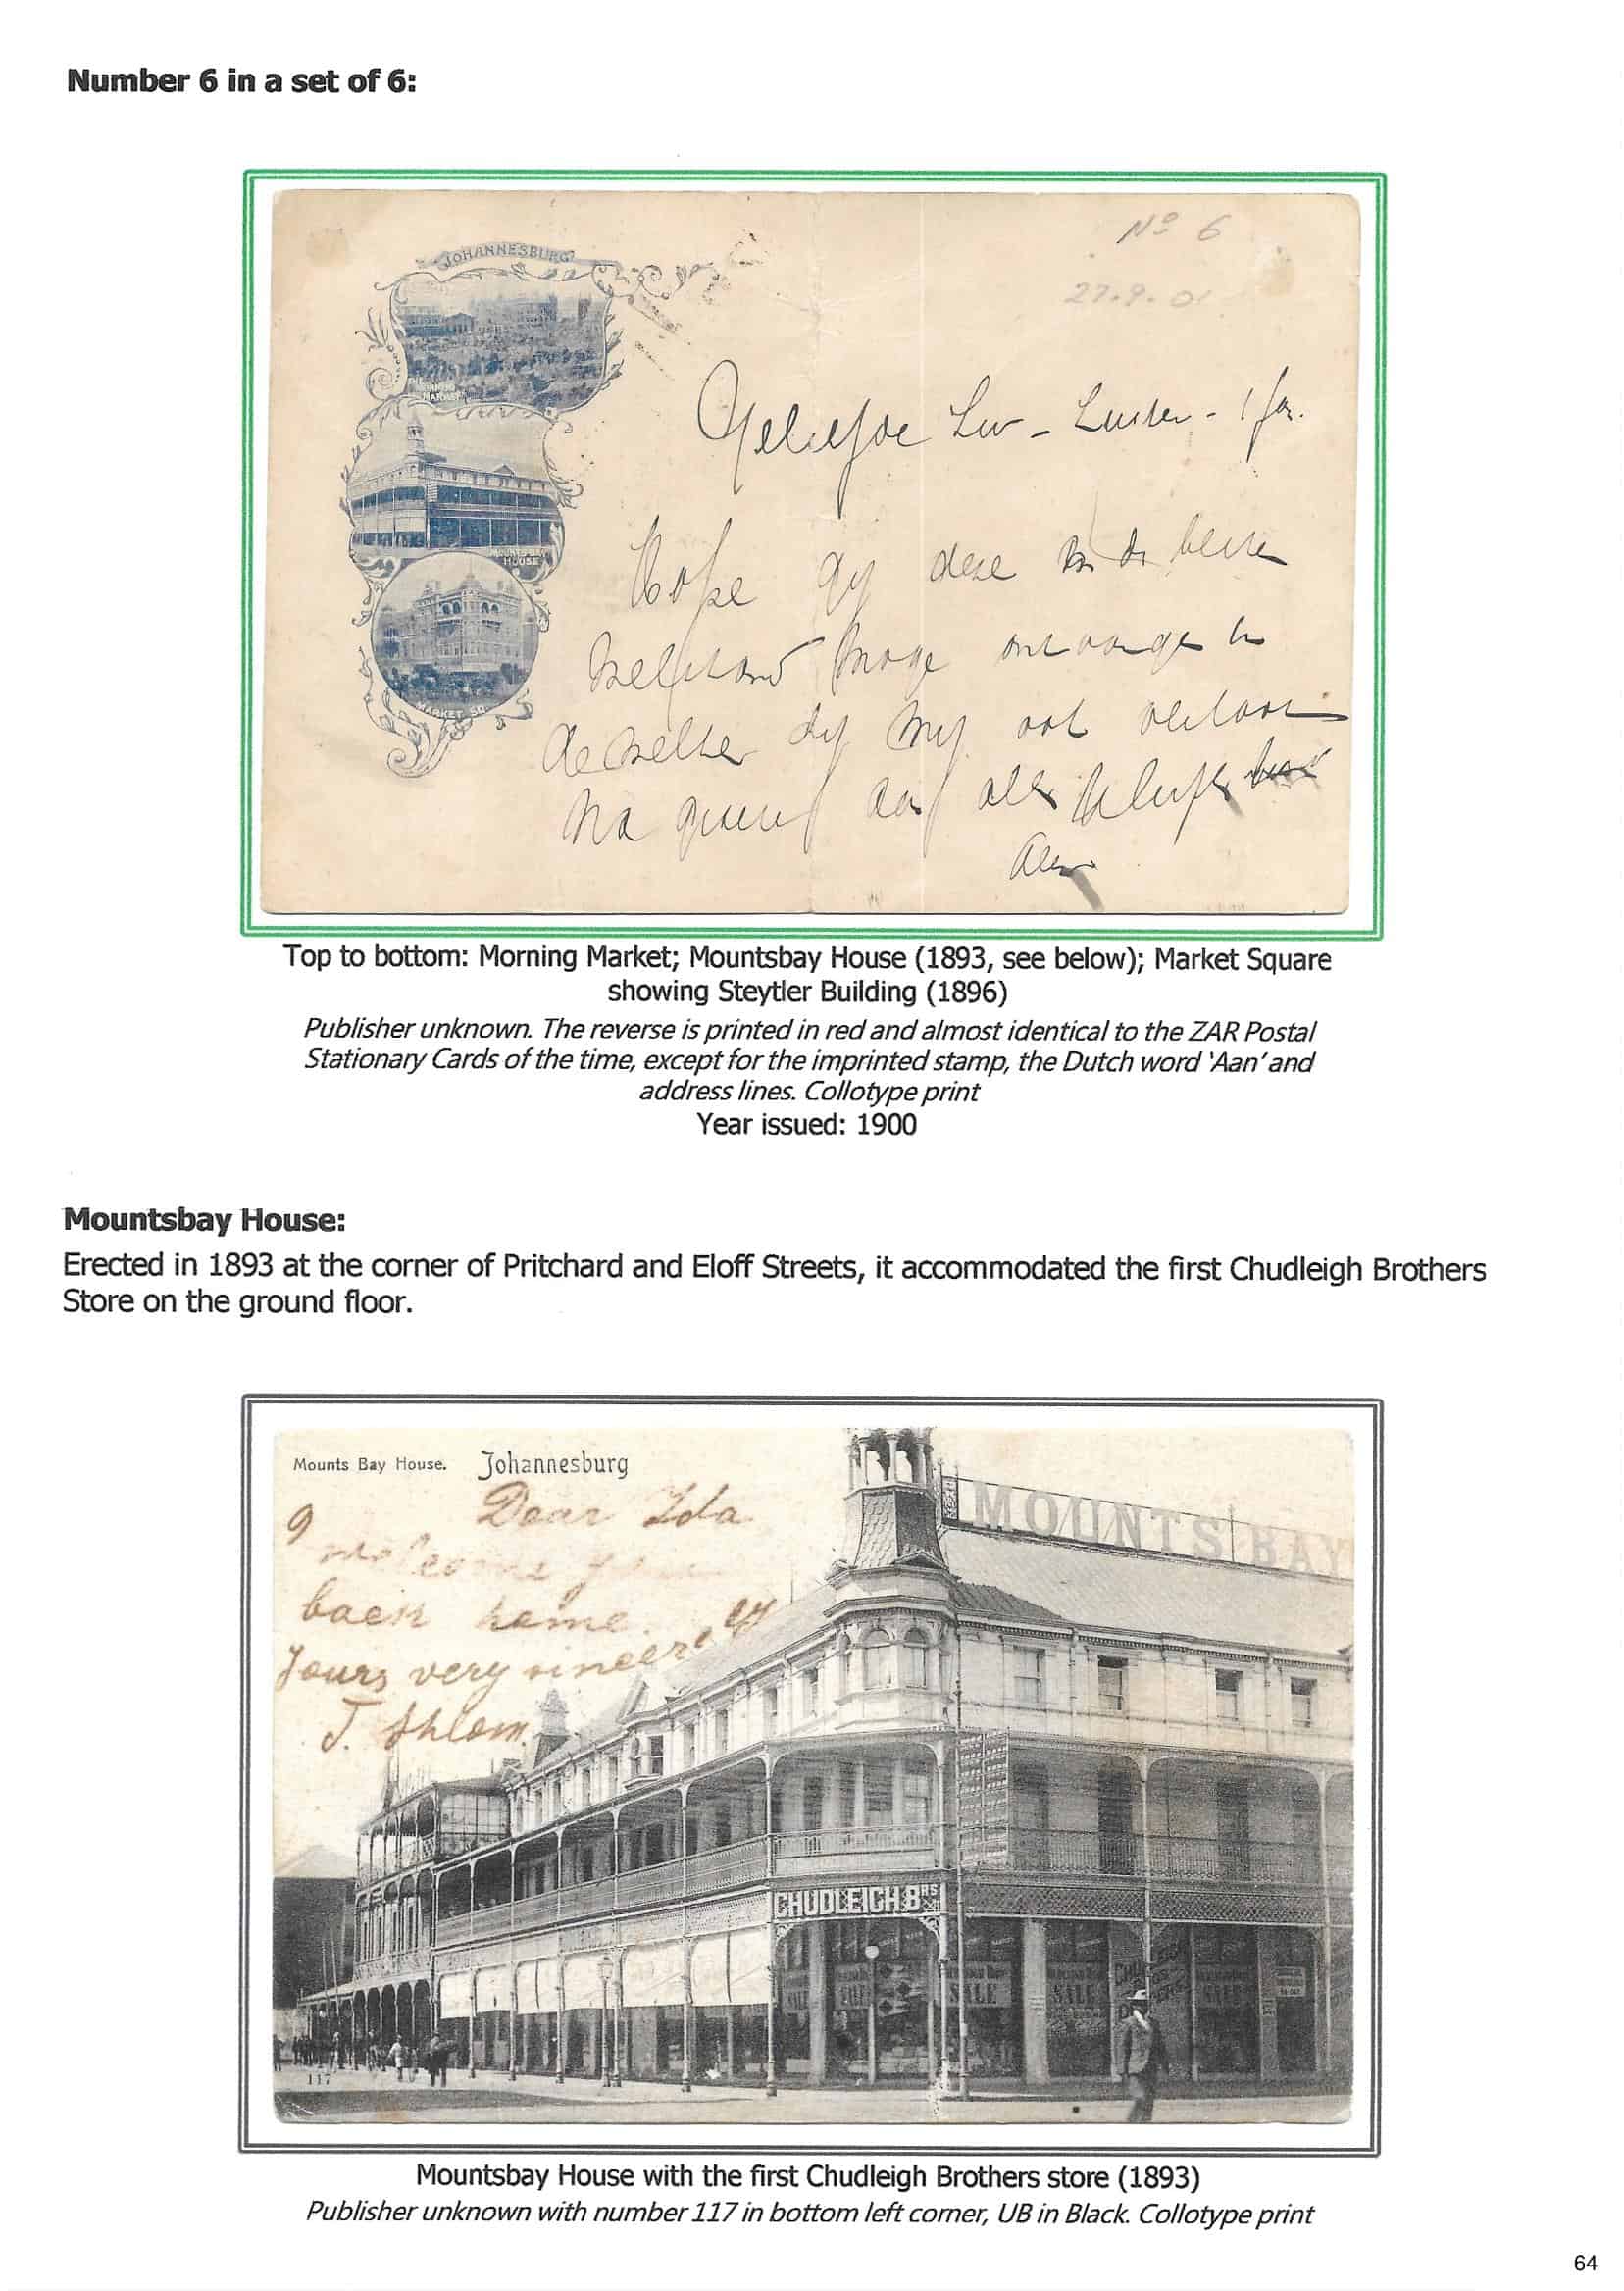 Number 6 in a set of 6:
JOHANNESBURG
No 6
27.9.01
MARKET
MOUNTS BAY
HOUSE
MARKET SQ.
Hope gy deze in de beste
welstand moge ontvangen en
dezelve by my ook
Na groete aan alle
Top to bottom: Morning Market; Mountsbay House (1893, see below); Market Square
showing Steytler Building (1896)
Publisher unknown. The reverse is printed in red and almost identical to the ZAR Postal
Stationary Cards of the time, except for the imprinted stamp, the Dutch word ‘Aan’ and
address lines. Collotype print
Year issued: 1900
Mountsbay House:
Erected in 1893 at the corner of Pritchard and Eloff Streets, it accommodated the first Chudleigh Brothers
Store on the ground floor.
Mounts Bay House. Johannesburg
Dear Ida
I welcome you
back home.
Yours very sincerely
J. Shlom.
MOUNTS BAY
CHUDLEIGH BRS
SALE
SALE
117
Mountsbay House with the first Chudleigh Brothers store (1893)
Publisher unknown with number 117 in bottom left corner, UB in Black. Collotype print
64